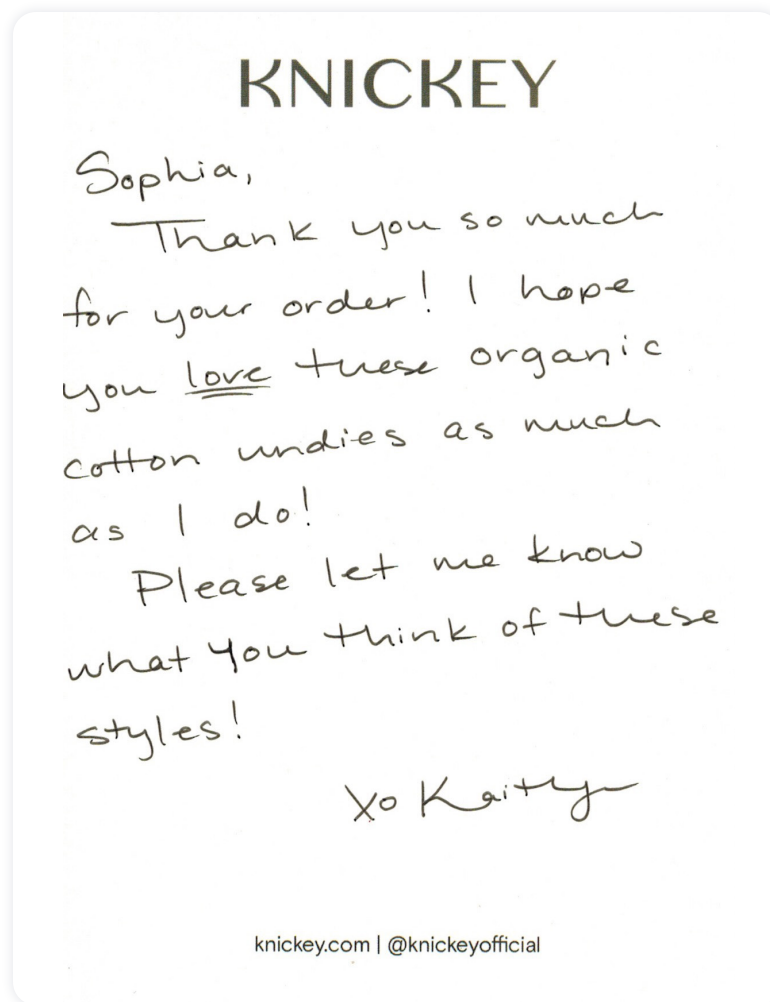 KNICKEY
Sophia,
Thank you so much
for your order! I hope
you love these organic
cotton undies as much
as I do!
Please let me know
what you think of these
styles!
Xo Kaitlyn
knickey.com | @knickeyofficial